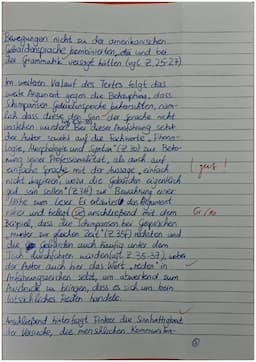 Bewegungen nicht zu der amerikanischen
Gebärdensprache kombinierten, da und bei
der Grammatik versagt hätten (vgl. Z. 25-27).
Im weiteren Verlauf des Textes folgt das
zweite Argument gegen die Behauptung, dass
Schimpansen Gebärdensprache beherrschten, näm-
lich dass diese den Sinn der Sprache nicht
verstehen würden. Bei dieser Ausführung setzt
der Autor sowohl auf die Fachwörter „Phono-
logie, Morphologie und Syntax" (Z. 30) zur Beto-
nung seiner Professionalität, als auch auf
einfache Sprache mit der Aussage, einfach
nicht, wenn die Gebärden eigentlich
gut sein sollen" (Z. 34) zur Bewahrung einer
Nähe zum Leser. Er erläutert das Argument
näher und belegt anschließend mit dem
Beispiel, dass die Schimpansen bei Gesprächen
„munter zur gleichen Zeit" (Z. 35f) redeten und
die Gebärden auch häufig unter dem
Tisch durchführen würden (vgl. Z. 35-37), wobei
der Autor auch hier das Wort „reden" in
Anführungszeichen setzt, um abwertend zum
Ausdruck zu bringen, dass es sich um kein
tatsächliches Reden handele.
Anschließend hinterfragt Pinker die Sinnhaftigkeit
der Versuche, die menschlichen Kommunika-
gut!
Gr/